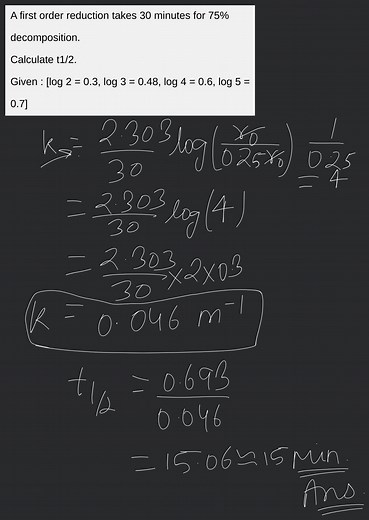 A first order reduction takes 30 minutes for 75%
decomposition.
Calculate t1/2.
Given : [log 2 = 0.3, log 3 = 0.48, log 4 = 0.6, log 5 =
0.7]
k = 2.303/30 log(x0/0.25x0) 1/0.25 = 4
= 2.303/30 log(4)
= 2.303/30 × 2 × 03
k = 0.046 m⁻¹
t1/2 = 0.693/0.046
= 15.06 ≃ 15 min.
Ans